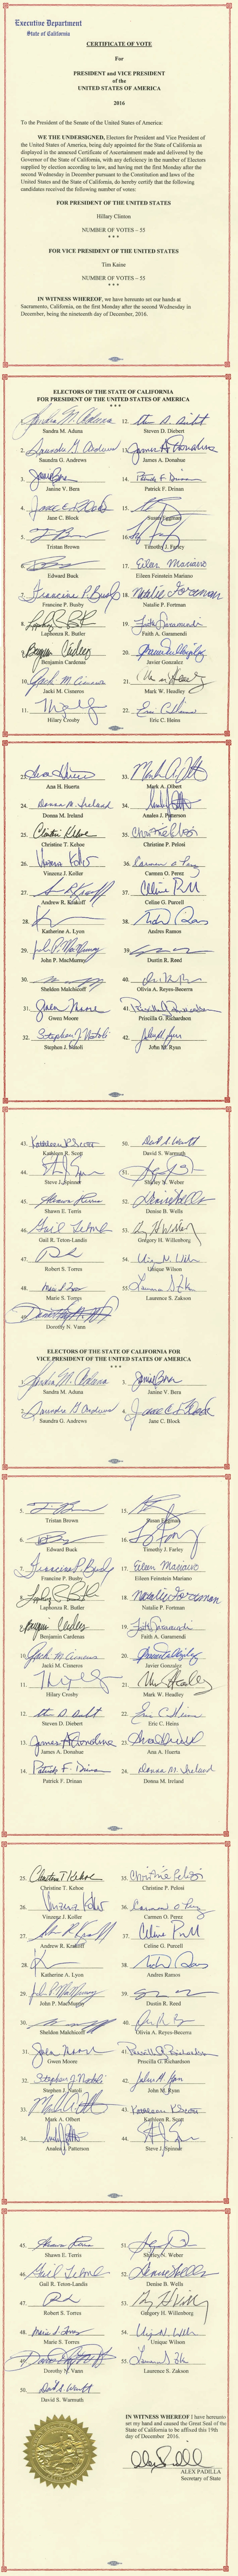 Executive Department
State of California
CERTIFICATE OF VOTE
For
PRESIDENT and VICE PRESIDENT
of the
UNITED STATES OF AMERICA
2016
To the President of the Senate of the United States of America:
WE THE UNDERSIGNED, Electors for President and Vice President of
the United States of America, being duly appointed for the State of California as
displayed in the annexed Certificate of Ascertainment made and delivered by the
Governor of the State of California, with any deficiency in the number of Electors
supplied by election according to law, and having met the first Monday after the
second Wednesday in December pursuant to the Constitution and laws of the
United States and the State of California, do hereby certify that the following
candidates received the following number of votes:
FOR PRESIDENT OF THE UNITED STATES
Hillary Clinton
NUMBER OF VOTES – 55
* * *
FOR VICE PRESIDENT OF THE UNITED STATES
Tim Kaine
NUMBER OF VOTES – 55
* * *
IN WITNESS WHEREOF, we have hereunto set our hands at
Sacramento, California, on the first Monday after the second Wednesday in
December, being the nineteenth day of December, 2016.
ELECTORS OF THE STATE OF CALIFORNIA
FOR PRESIDENT OF THE UNITED STATES OF AMERICA
* * *
1.
Sandra M. Aduna
2.
Saundra G. Andrews
3.
Janine V. Bera
4.
Jane C. Block
5.
Tristan Brown
6.
Edward Buck
7.
Francine P. Busby
8.
Laphonza R. Butler
9.
Benjamin Cardenas
10.
Jacki M. Cisneros
11.
Hilary Crosby
12.
Steven D. Diebert
13.
James A. Donahue
14.
Patrick F. Drinan
15.
Susan Eggman
16.
Timothy J. Farley
17.
Eileen Feinstein Mariano
18.
Natalie P. Fortman
19.
Faith A. Garamendi
20.
Javier Gonzalez
21.
Mark W. Headley
22.
Eric C. Heins
23.
Ana A. Huerta
24.
Donna M. Ireland
25.
Christine T. Kehoe
26.
Vinzenz J. Koller
27.
Andrew R. Krakoff
28.
Katherine A. Lyon
29.
John P. MacMurray
30.
Sheldon Malchicoff
31.
Gwen Moore
32.
Stephen J. Natoli
33.
Mark A. Olbert
34.
Analea J. Patterson
35.
Christine P. Pelosi
36.
Carmen O. Perez
37.
Celine G. Purcell
38.
Andres Ramos
39.
Dustin R. Reed
40.
Olivia A. Reyes-Becerra
41.
Priscilla G. Richardson
42.
John M. Ryan
43.
Kathleen R. Scott
44.
Steve J. Spinner
45.
Shawn E. Terris
46.
Gail R. Teton-Landis
47.
Robert S. Torres
48.
Marie S. Torres
Dorothy N. Vann
50.
David S. Warmuth
51.
Shirley N. Weber
52.
Denise B. Wells
53.
Gregory H. Willenborg
54.
Unique Wilson
55.
Laurence S. Zakson
ELECTORS OF THE STATE OF CALIFORNIA FOR
VICE PRESIDENT OF THE UNITED STATES OF AMERICA
* * *
1.
Sandra M. Aduna
2.
Saundra G. Andrews
3.
Janine V. Bera
4.
Jane C. Block
5.
Tristan Brown
6.
Edward Buck
7.
Francine P. Busby
8.
Laphonza R. Butler
9.
Benjamin Cardenas
10.
Jacki M. Cisneros
11.
Hilary Crosby
12.
Steven D. Diebert
13.
James A. Donahue
14.
Patrick F. Drinan
15.
Susan Eggman
16.
Timothy J. Farley
17.
Eileen Feinstein Mariano
18.
Natalie P. Fortman
19.
Faith A. Garamendi
20.
Javier Gonzalez
21.
Mark W. Headley
22.
Eric C. Heins
23.
Ana A. Huerta
24.
Donna M. Ireland
25.
Christine T. Kehoe
26.
Vinzenz J. Koller
27.
Andrew R. Krakoff
28.
Katherine A. Lyon
29.
John P. MacMurray
30.
Sheldon Malchicoff
31.
Gwen Moore
32.
Stephen J. Natoli
33.
Mark A. Olbert
34.
Analea J. Patterson
35.
Christine P. Pelosi
36.
Carmen O. Perez
37.
Celine G. Purcell
38.
Andres Ramos
39.
Dustin R. Reed
40.
Olivia A. Reyes-Becerra
41.
Priscilla G. Richardson
42.
John M. Ryan
43.
Kathleen R. Scott
44.
Steve J. Spinner
45.
Shawn E. Terris
46.
Gail R. Teton-Landis
47.
Robert S. Torres
48.
Marie S. Torres
49.
Dorothy N. Vann
50.
David S. Warmuth
51.
Shirley N. Weber
52.
Denise B. Wells
53.
Gregory H. Willenborg
54.
Unique Wilson
55.
Laurence S. Zakson
IN WITNESS WHEREOF I have hereunto
set my hand and caused the Great Seal of the
State of California to be affixed this 19th
day of December 2016.
ALEX PADILLA
Secretary of State